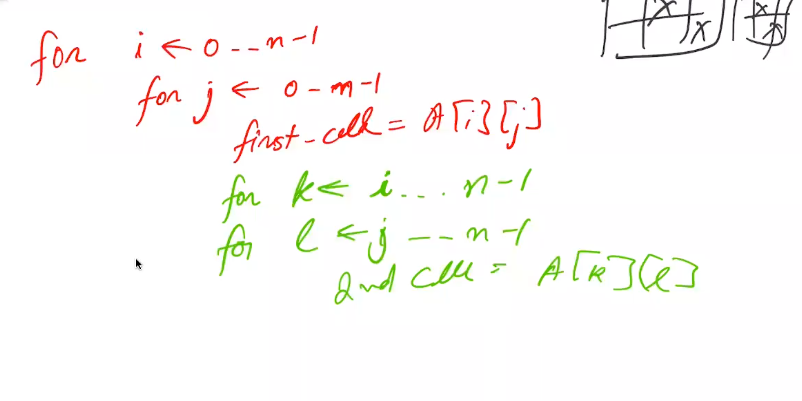 for i ← 0 -- n-1
for j ← 0 - m-1
first-cell = A[i][j]
for k ← i... n-1
for l ← j -- m-1
2nd cell = A[k][l]